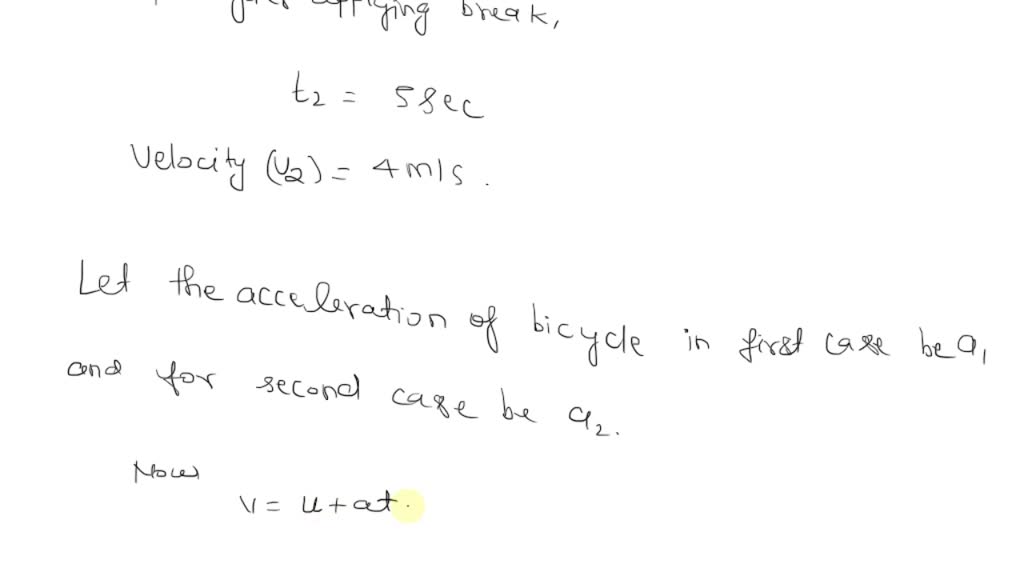 applying break,
t2 = 5 sec
Velocity (V2) = 4 m/s.
Let the acceleration of bicycle in first case be a1
and for second case be a2.
Now
v = u + at.